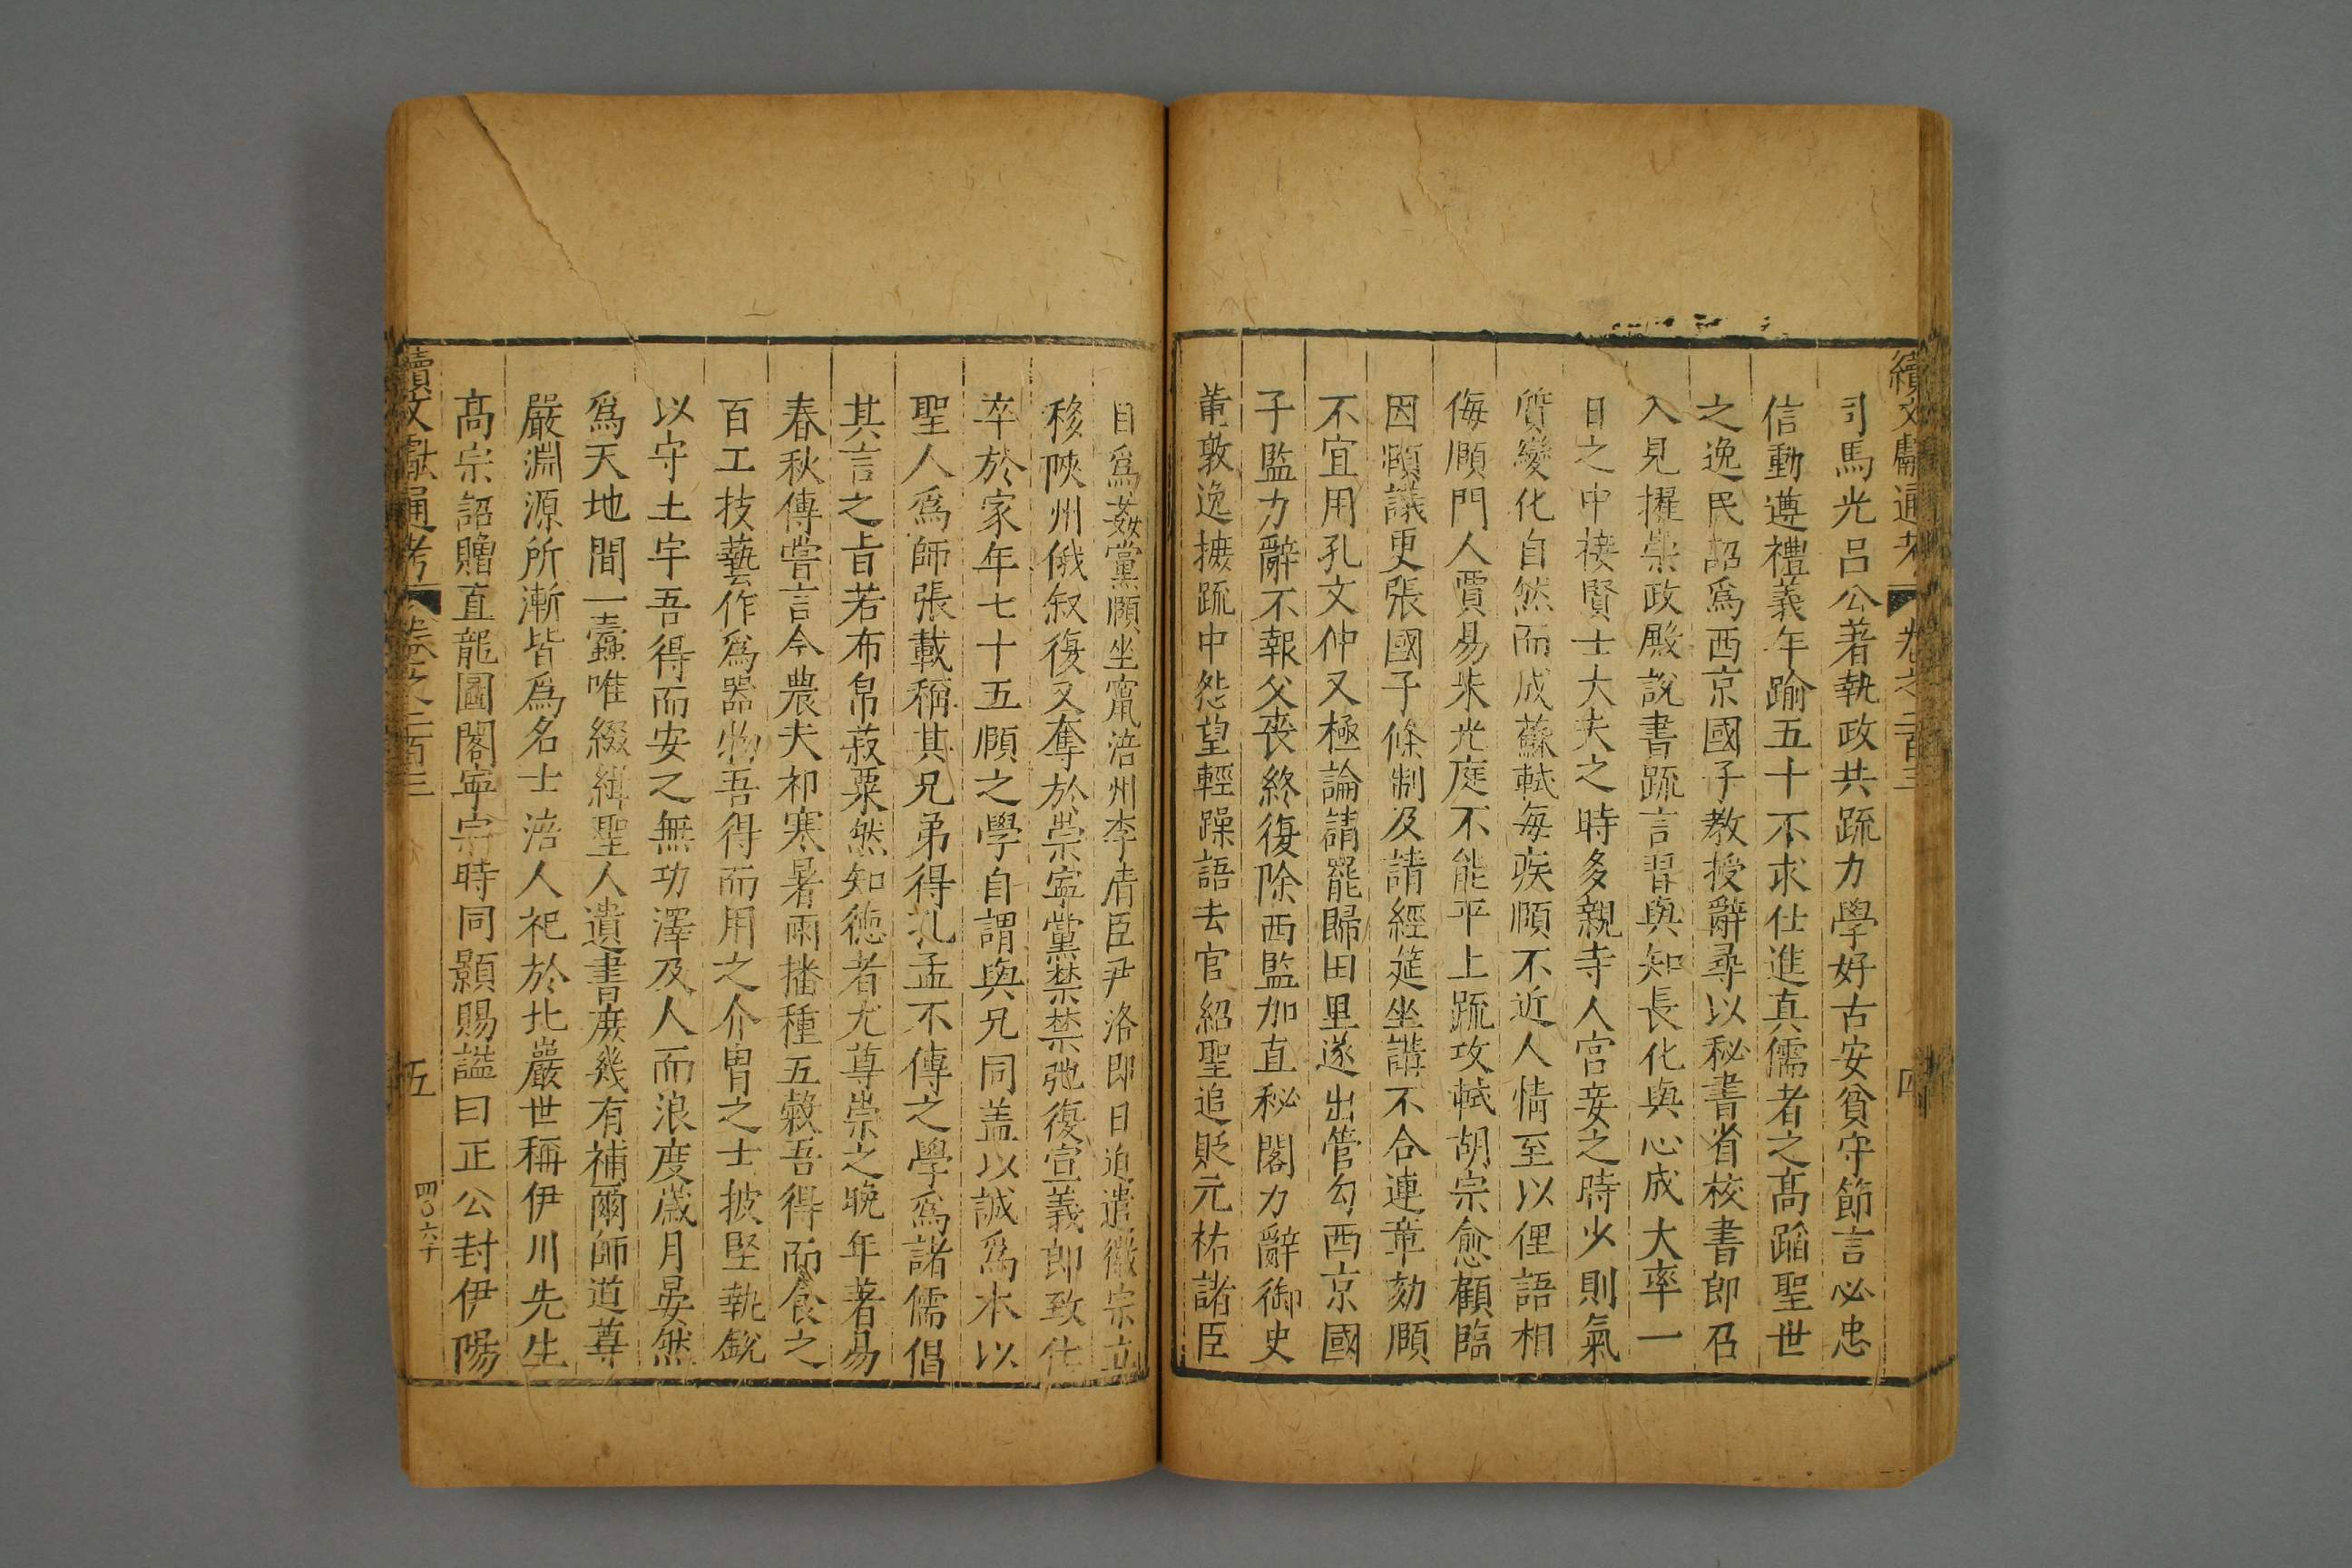 續文獻通考 卷之二百三 四
司馬光呂公著執政共疏力學好古安貧守節言必忠
信動遵禮義年踰五十不求仕進真儒者之高蹈聖世
之逸民詔爲西京國子教授辭尋以秘書省校書郎召
入見擢崇政殿說書疏言習與知長化與心成大率一
日之中接賢士大夫之時多親寺人宮妾之時少則氣
質變化自然而成蘇軾每疾頤不近人情至以俚語相
侮頤門人賈易朱光庭不能平上疏攻軾胡宗愈顧臨
因頤議更張國子條制及請經筵坐講不合連章劾頤
不宜用孔文仲又極論請罷歸田里遂出管勾西京國
子監力辭不報父喪終復除西監加直秘閣力辭御史
董敦逸摭疏中怨望輕躁語去官紹聖追貶元祐諸臣
目爲姦黨頤坐竄涪州李清臣尹洛即日迫遣徽宗立
移陝州俄叙復又奪於崇寧黨禁禁弛復宣義郎致仕
卒於家年七十五頤之學自謂與兄同盖以誠爲本以
聖人爲師張載稱其兄弟得孔孟不傳之學爲諸儒倡
其言之旨若布帛菽粟然知德者尤尊崇之晚年著易
春秋傳嘗言今農夫祁寒暑雨播種五穀吾得而食之
百工技藝作爲器物吾得而用之介冑之士披堅執銳
以守土宇吾得而安之無功澤及人而浪度歲月晏然
爲天地間一蠹唯綴緝聖人遺書庶幾有補爾師道尊
嚴淵源所漸皆爲名士涪人祀於北巖世稱伊川先生
高宗詔贈直龍圖閣寧宗時同顥賜謚曰正公封伊陽
續文獻通考 卷之二百三 五 四〇六十